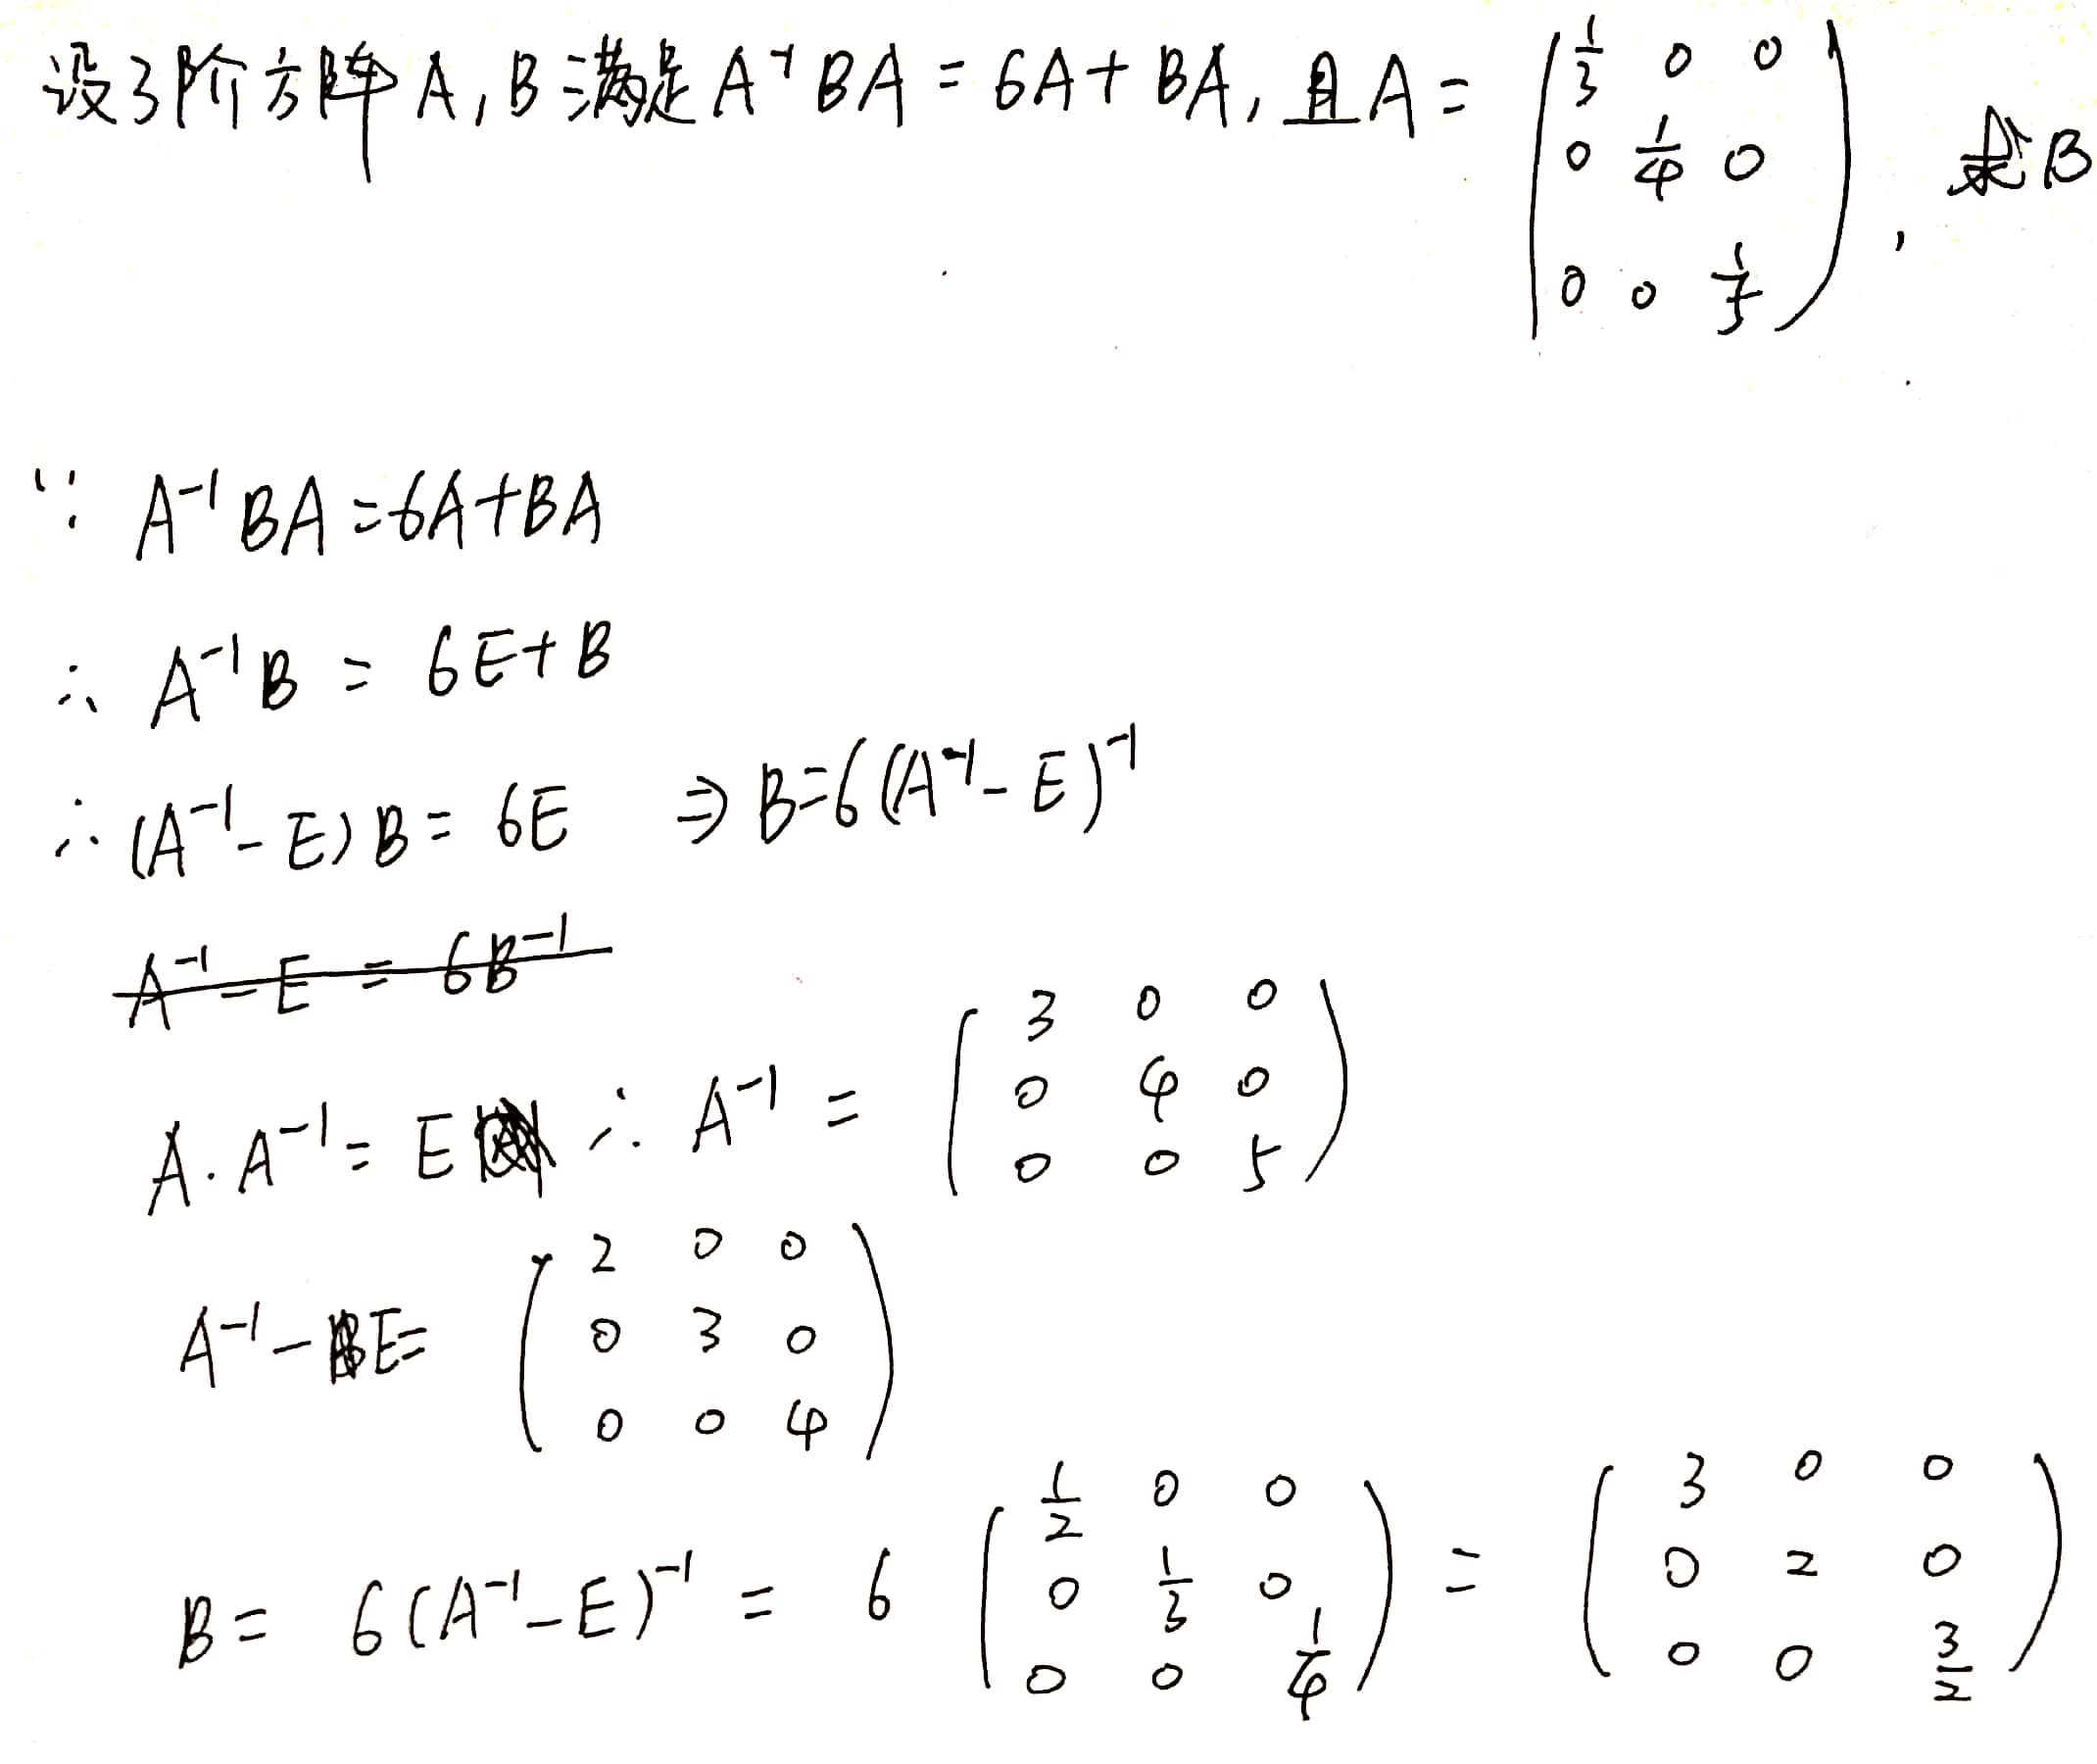 设3阶方阵A,B满足A⁻¹BA=6A+BA,且A=(1/3 0 0; 0 1/4 0; 0 0 1/5),求B
∵ A⁻¹BA=6A+BA
∴ A⁻¹B=6E+B
∴ (A⁻¹-E)B=6E ⇒ B=6(A⁻¹-E)⁻¹
A⁻¹-E=6B⁻¹
A·A⁻¹=E ∴ A⁻¹=(3 0 0; 0 4 0; 0 0 5)
A⁻¹-E=(2 0 0; 0 3 0; 0 0 4)
B=6(A⁻¹-E)⁻¹=6(1/2 0 0; 0 1/3 0; 0 0 1/4)=(3 0 0; 0 2 0; 0 0 3/2)